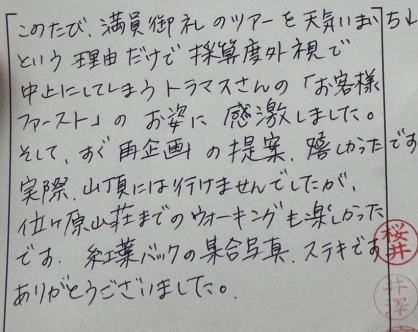 このたび、満員御礼のツアーを天気いまいち
という理由だけで採算度外視で
中止にしてしまうトラマスさんの「お客様
ファースト」のお姿に感激しました。
そして、すぐ再企画の提案、嬉しかったです
実際、山頂には行けませんでしたが、
位ヶ原山荘までのウォーキングも楽しかった
です。紅葉バックの集合写真、ステキです
ありがとうございました。
桜井
井澤